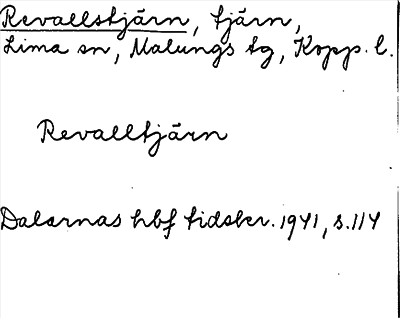 Revallstjärn, tjärn,
Lima sn, Malungs tg, Kopp. l.
Revalltjärn
Dalarnas hbf tidskr. 1941, s. 114